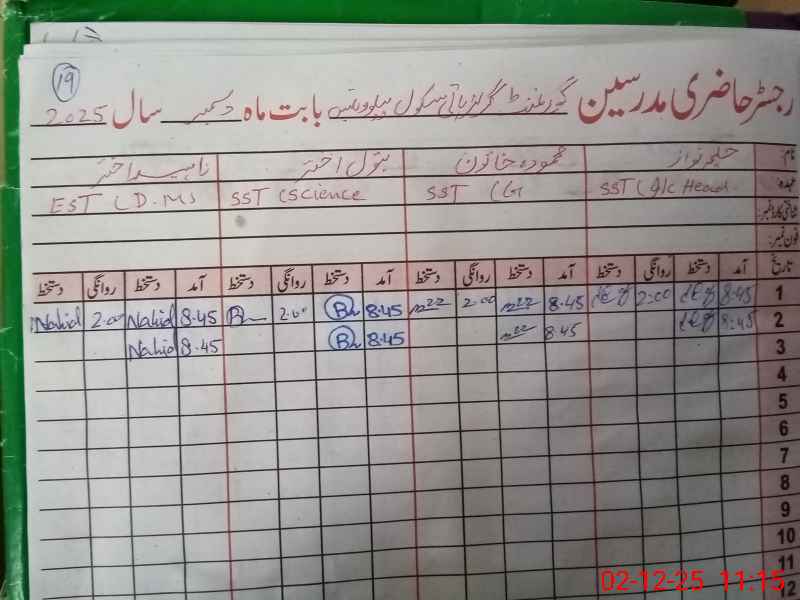 19
رجسٹر حاضری مدرسین گورنمنٹ گرلز ہائی سکول بابت ماہ دسمبر سال 2025
نام: محمودہ خاتون بتول اختر ناہید اختر
عہدہ: SST (I/c Head SST (G SST (Science EST (D.Ms
شناختی کارڈ نمبر:
فون نمبر:
تاریخ آمد دستخط روانگی دستخط آمد دستخط روانگی دستخط آمد دستخط روانگی دستخط آمد دستخط روانگی دستخط
1 8:45 2:00 8.45 2:00 8.45 2:00 8.45 Nahid 2:00 Nahid
2 8:45 8.45 8.45 8.45 Nahid
3
4
5
6
7
8
9
10
11
12
02-12-25 11:15